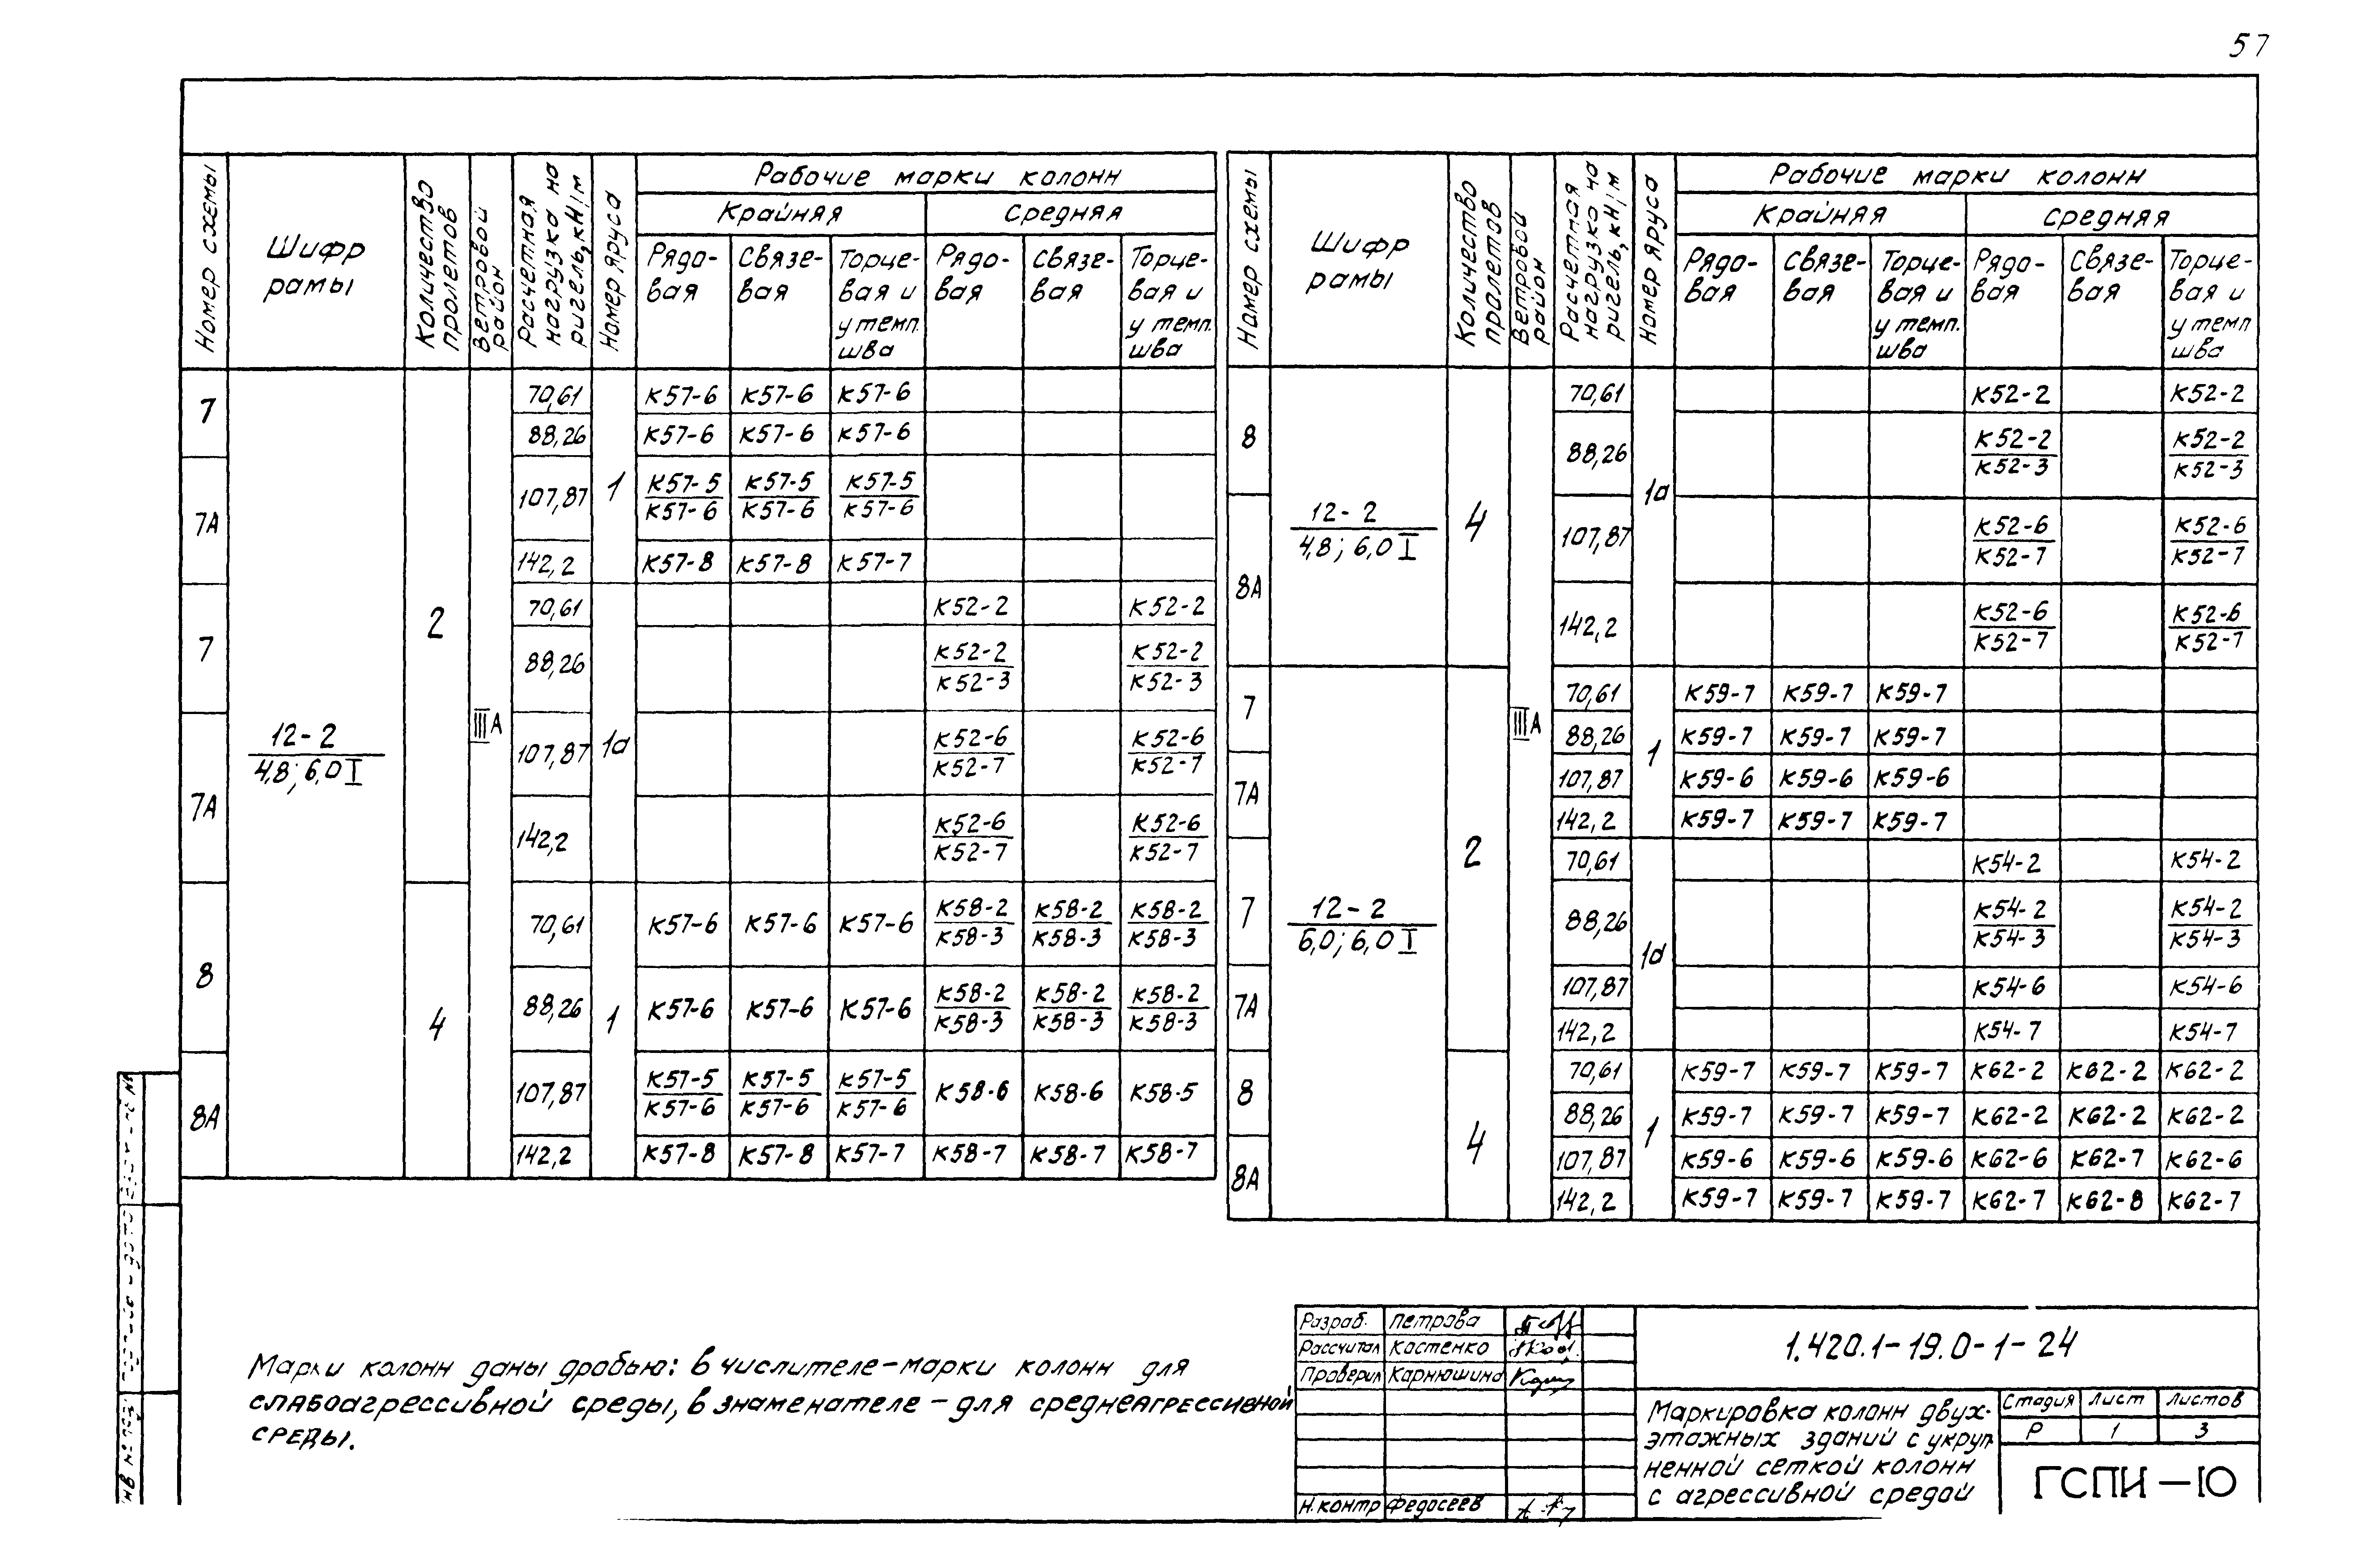 57
Номер схемы | Шифр рамы | Количество пролетов | Ветровой район | Расчетная нагрузка на ригель, кН/м | Номер яруса | Рабочие марки колонн
Крайняя | Средняя
Рядо-вая | Связе-вая | Торце-вая и у темп. шва | Рядо-вая | Связе-вая | Торце-вая и у темп. шва
7 | 12-2 / 4,8; 6,0 I | 2 | III А | 70,61 | 1 | К57-6 | К57-6 | К57-6
88,26 | К57-6 | К57-6 | К57-6
7А | 107,87 | К57-5 / К57-6 | К57-5 / К57-6 | К57-5 / К57-6
142,2 | К57-8 | К57-8 | К57-7
7 | 70,61 | 1а | К52-2 | К52-2
88,26 | К52-2 / К52-3 | К52-2 / К52-3
7А | 107,87 | К52-6 / К52-7 | К52-6 / К52-7
142,2 | К52-6 / К52-7 | К52-6 / К52-7
8 | 4 | 70,61 | 1 | К57-6 | К57-6 | К57-6 | К58-2 / К58-3 | К58-2 / К58-3 | К58-2 / К58-3
88,26 | К57-6 | К57-6 | К57-6 | К58-2 / К58-3 | К58-2 / К58-3 | К58-2 / К58-3
8А | 107,87 | К57-5 / К57-6 | К57-5 / К57-6 | К57-5 / К57-6 | К58-6 | К58-6 | К58-5
142,2 | К57-8 | К57-8 | К57-7 | К58-7 | К58-7 | К58-7
Номер схемы | Шифр рамы | Количество пролетов | Ветровой район | Расчетная нагрузка на ригель, кН/м | Номер яруса | Рабочие марки колонн
Крайняя | Средняя
Рядо-вая | Связе-вая | Торце-вая и у темп. шва | Рядо-вая | Связе-вая | Торце-вая и у темп шва
8 | 12-2 / 4,8; 6,0 I | 4 | III А | 70,61 | 1а | К52-2 | К52-2
88,26 | К52-2 / К52-3 | К52-2 / К52-3
8А | 107,87 | К52-6 / К52-7 | К52-6 / К52-7
142,2 | К52-6 / К52-7 | К52-6 / К52-7
7 | 12-2 / 6,0; 6,0 I | 2 | 70,61 | 1 | К59-7 | К59-7 | К59-7
88,26 | К59-7 | К59-7 | К59-7
7А | 107,87 | К59-6 | К59-6 | К59-6
142,2 | К59-7 | К59-7 | К59-7
7 | 70,61 | 1а | К54-2 | К54-2
88,26 | К54-2 / К54-3 | К54-2 / К54-3
7А | 107,87 | К54-6 | К54-6
142,2 | К54-7 | К54-7
8 | 4 | 70,61 | 1 | К59-7 | К59-7 | К59-7 | К62-2 | К62-2 | К62-2
88,26 | К59-7 | К59-7 | К59-7 | К62-2 | К62-2 | К62-2
8А | 107,87 | К59-6 | К59-6 | К59-6 | К62-6 | К62-7 | К62-6
142,2 | К59-7 | К59-7 | К59-7 | К62-7 | К62-8 | К62-7
Марки колонн даны дробью: в числителе – марки колонн для
слабоагрессивной среды, в знаменателе – для среднеагрессивной
среды.
Разраб. Петрова
Рассчитал Костенко
Проверил Карнюшина
Н.контр Федосеев
1.420.1-19.0-1-24
Маркировка колонн двух-
этажных зданий с укруп
ненной сеткой колонн
с агрессивной средой
Стадия Лист Листов
Р 1 3
ГСПИ-10